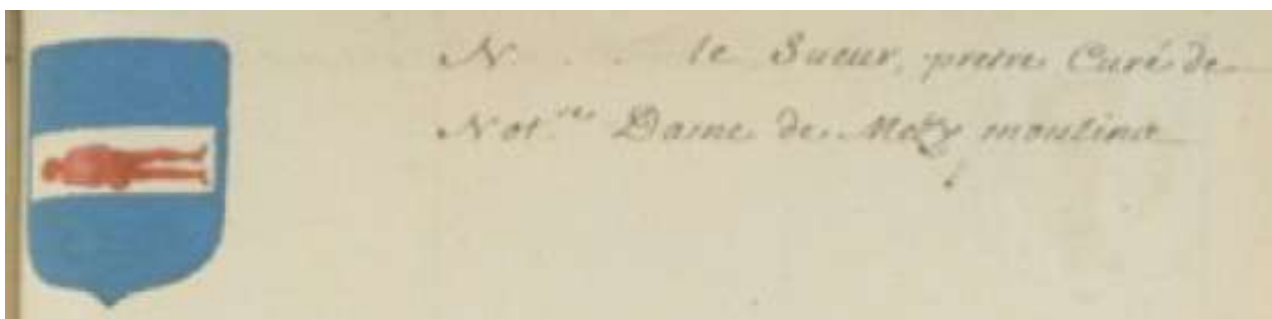 N . . . le Sueur, pretre Curé de
Not.re Dame de Mezy moulins